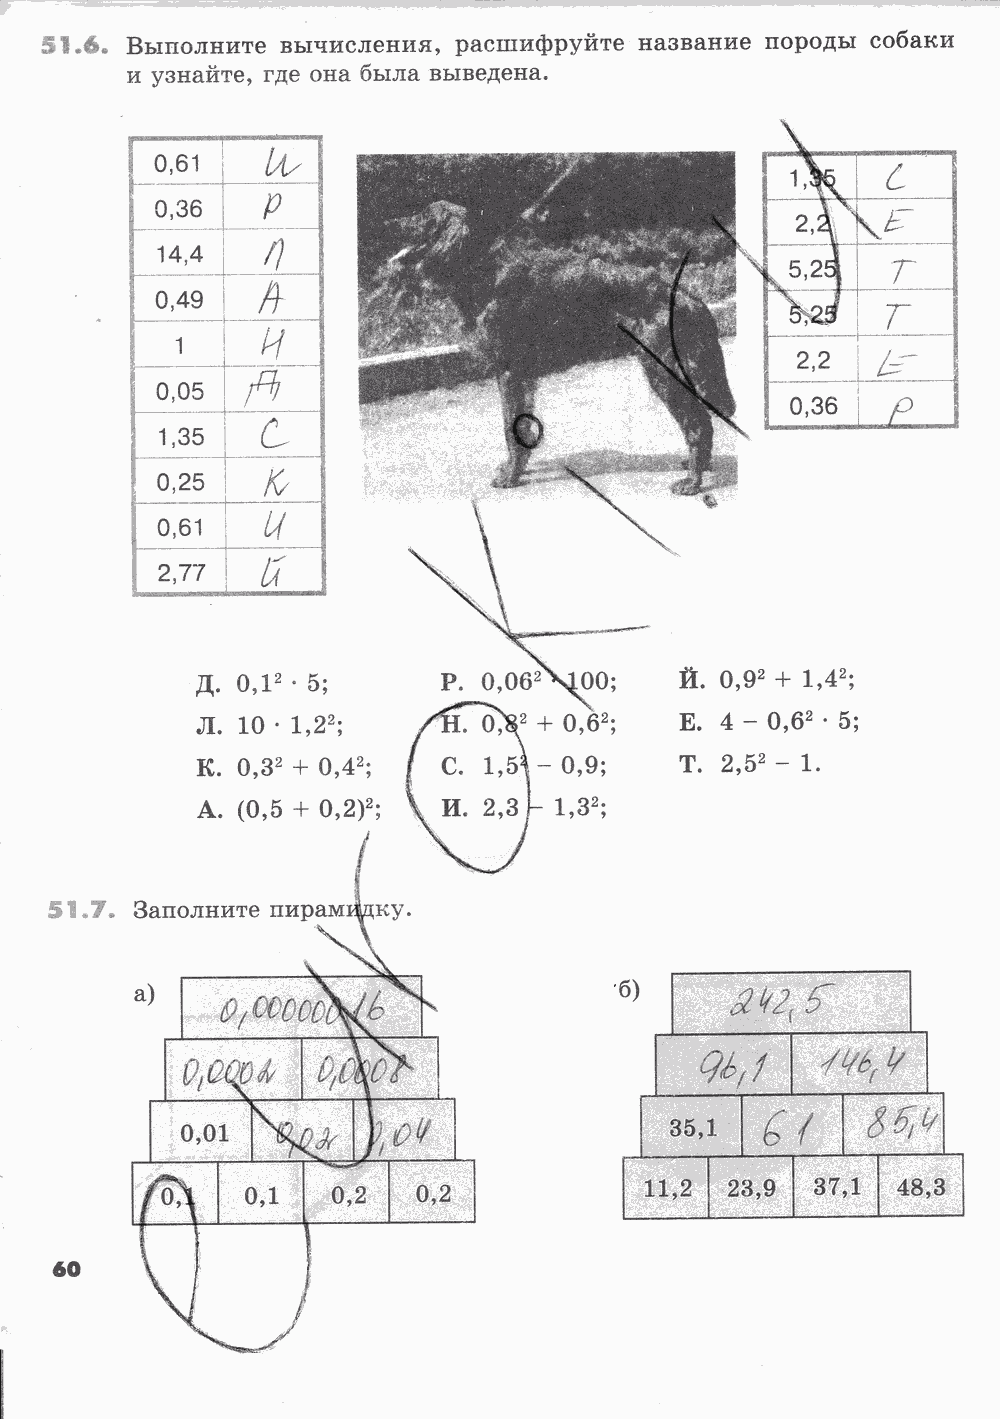 51.6. Выполните вычисления, расшифруйте название породы собаки
и узнайте, где она была выведена.
0,61 И
0,36 Р
14,4 Л
0,49 А
1 Н
0,05 Д
1,35 С
0,25 К
0,61 И
2,77 Й
1,35 С
2,2 Е
5,25 Т
5,25 Т
2,2 Е
0,36 Р
Д. 0,1² · 5; Р. 0,06² · 100; Й. 0,9² + 1,4²;
Л. 10 · 1,2²; Н. 0,8² + 0,6²; Е. 4 − 0,6² · 5;
К. 0,3² + 0,4²; С. 1,5² − 0,9; Т. 2,5² − 1.
А. (0,5 + 0,2)²; И. 2,3 − 1,3²;
51.7. Заполните пирамидку.
а)
0,00000016
0,0002 0,0008
0,01 0,02 0,04
0,1 0,1 0,2 0,2
б)
242,5
96,1 146,4
35,1 61 85,4
11,2 23,9 37,1 48,3
60